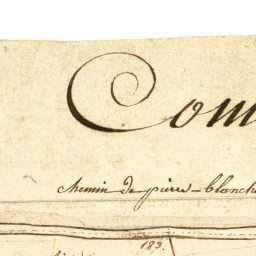 Com
chemin de pierre-blanche
183.